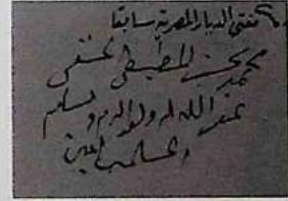 مفتي الديار المصرية سابقا
محمد بخيت المطيعي الحنفي
غفر الله له ولوالديه ولمسلم
المسلمين امين